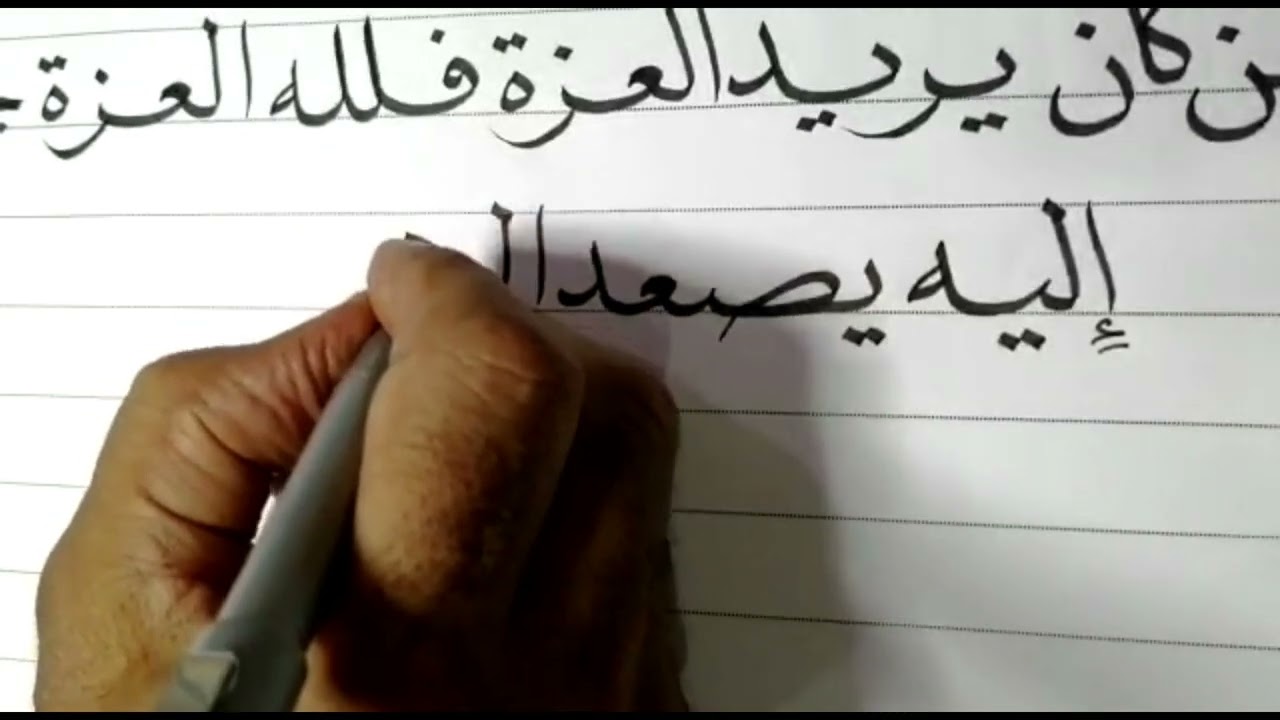 ن كان يريد العزة فلله العزة ج
إليه يصعد ال